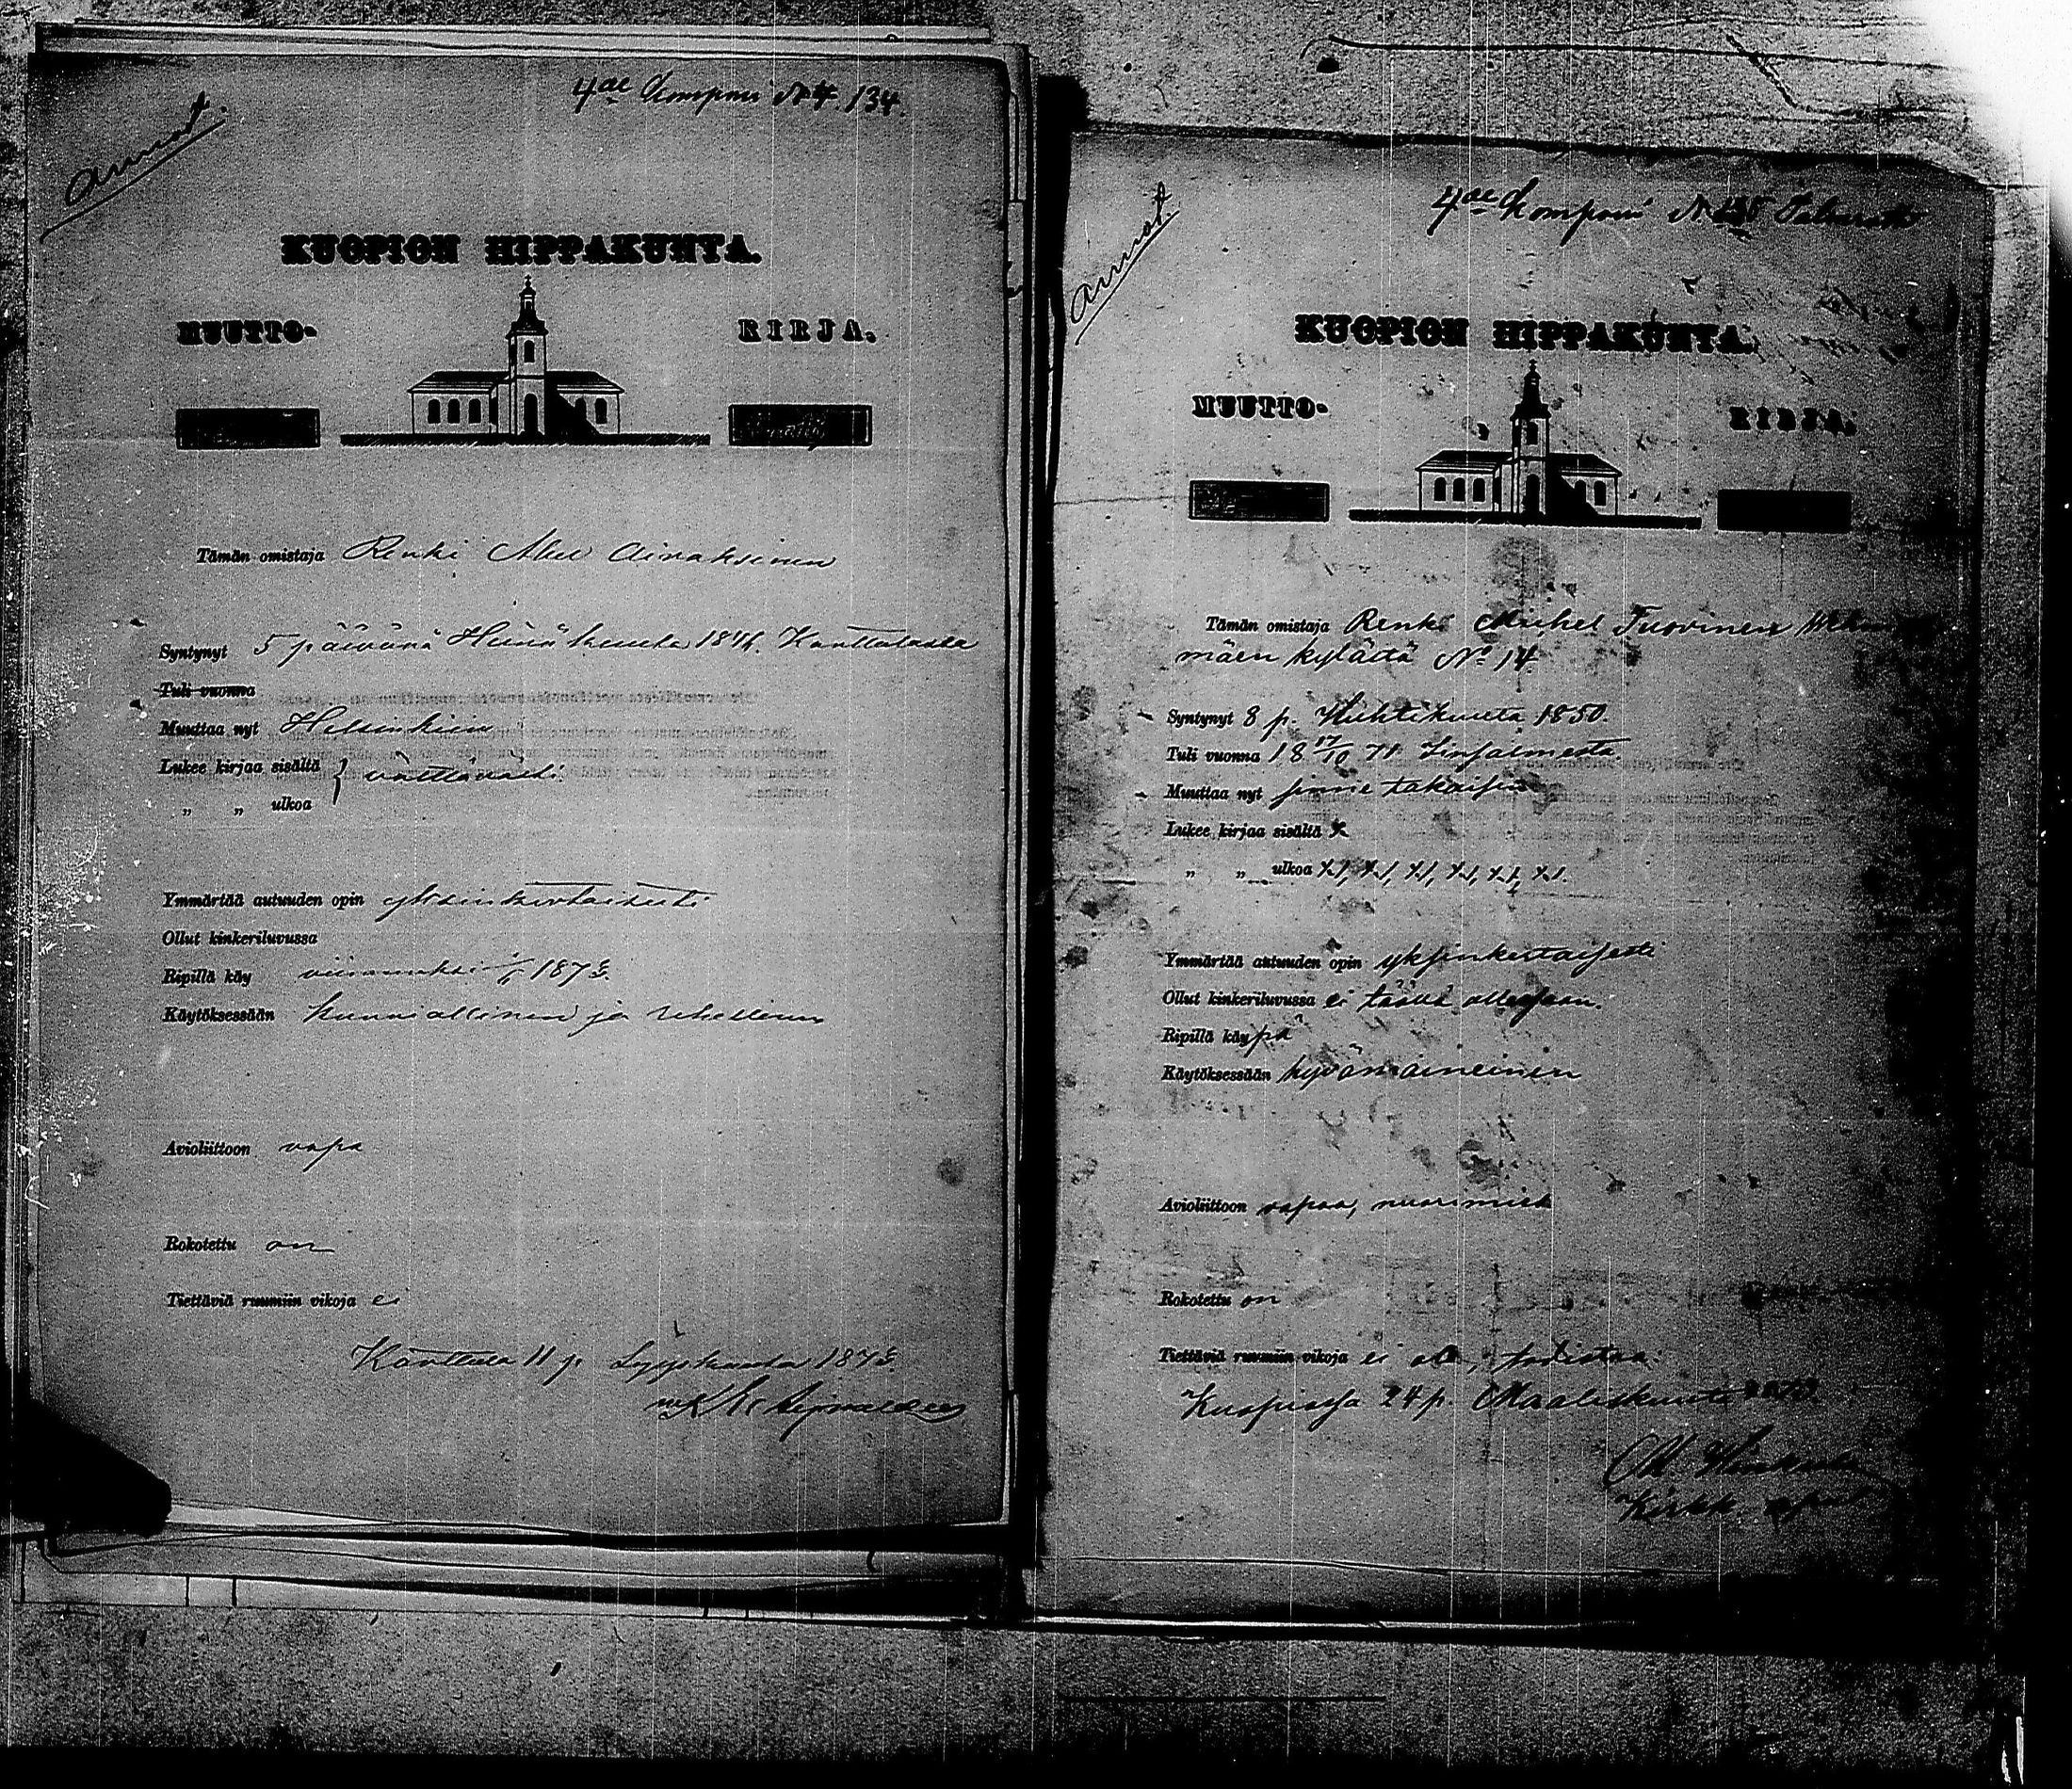 4de Kompani N 4. 134.
KUOPION HIPPAKUNTA.
MUUTTO- KIRJA.
Tämän omistaja Renki Abel Airaksinen
Syntynyt 5 päivänä Heinäkuuta 1846. Karttulassa
Tuli vuonna
Muuttaa nyt Helsinkiin
Lukee kirjaa sisältä } välttävästi
„ „ ulkoa
Ymmärtää autuuden opin yksinkertaisesti
Ollut kinkeriluvussa
Ripillä käy viimmeksi 1873.
Käytöksessään kunniallinen ja rehellinen
Avioliittoon vapa
Rokotettu on
Tiettäviä ruumiin vikoja ei
Karttula 11 p. Syyskuuta 1873.
4de Kompani N 135
KUOPION HIPPAKUNTA.
MUUTTO- KIRJA.
Tämän omistaja Renki Michel Tuovinen
mäen kylästä No 14
Syntynyt 8 p. Huhtikuuta 1850.
Tuli vuonna 18 17/10 71
Muuttaa nyt sinne takaisin
Lukee kirjaa sisältä x
„ „ ulkoa x1, x1, x1, x1, x1, x1.
Ymmärtää autuuden opin yksinkertaisesti
Ollut kinkeriluvussa ei täällä ollessaan.
Ripillä käypä
Käytöksessään hyvänmaineinen
Avioliittoon vapaa, nuorimies
Rokotettu on
Tiettäviä ruumiin vikoja ei ole, todistaa:
Kuopiossa 24 p. Maaliskuuta 1873.
Kirkk. apul.